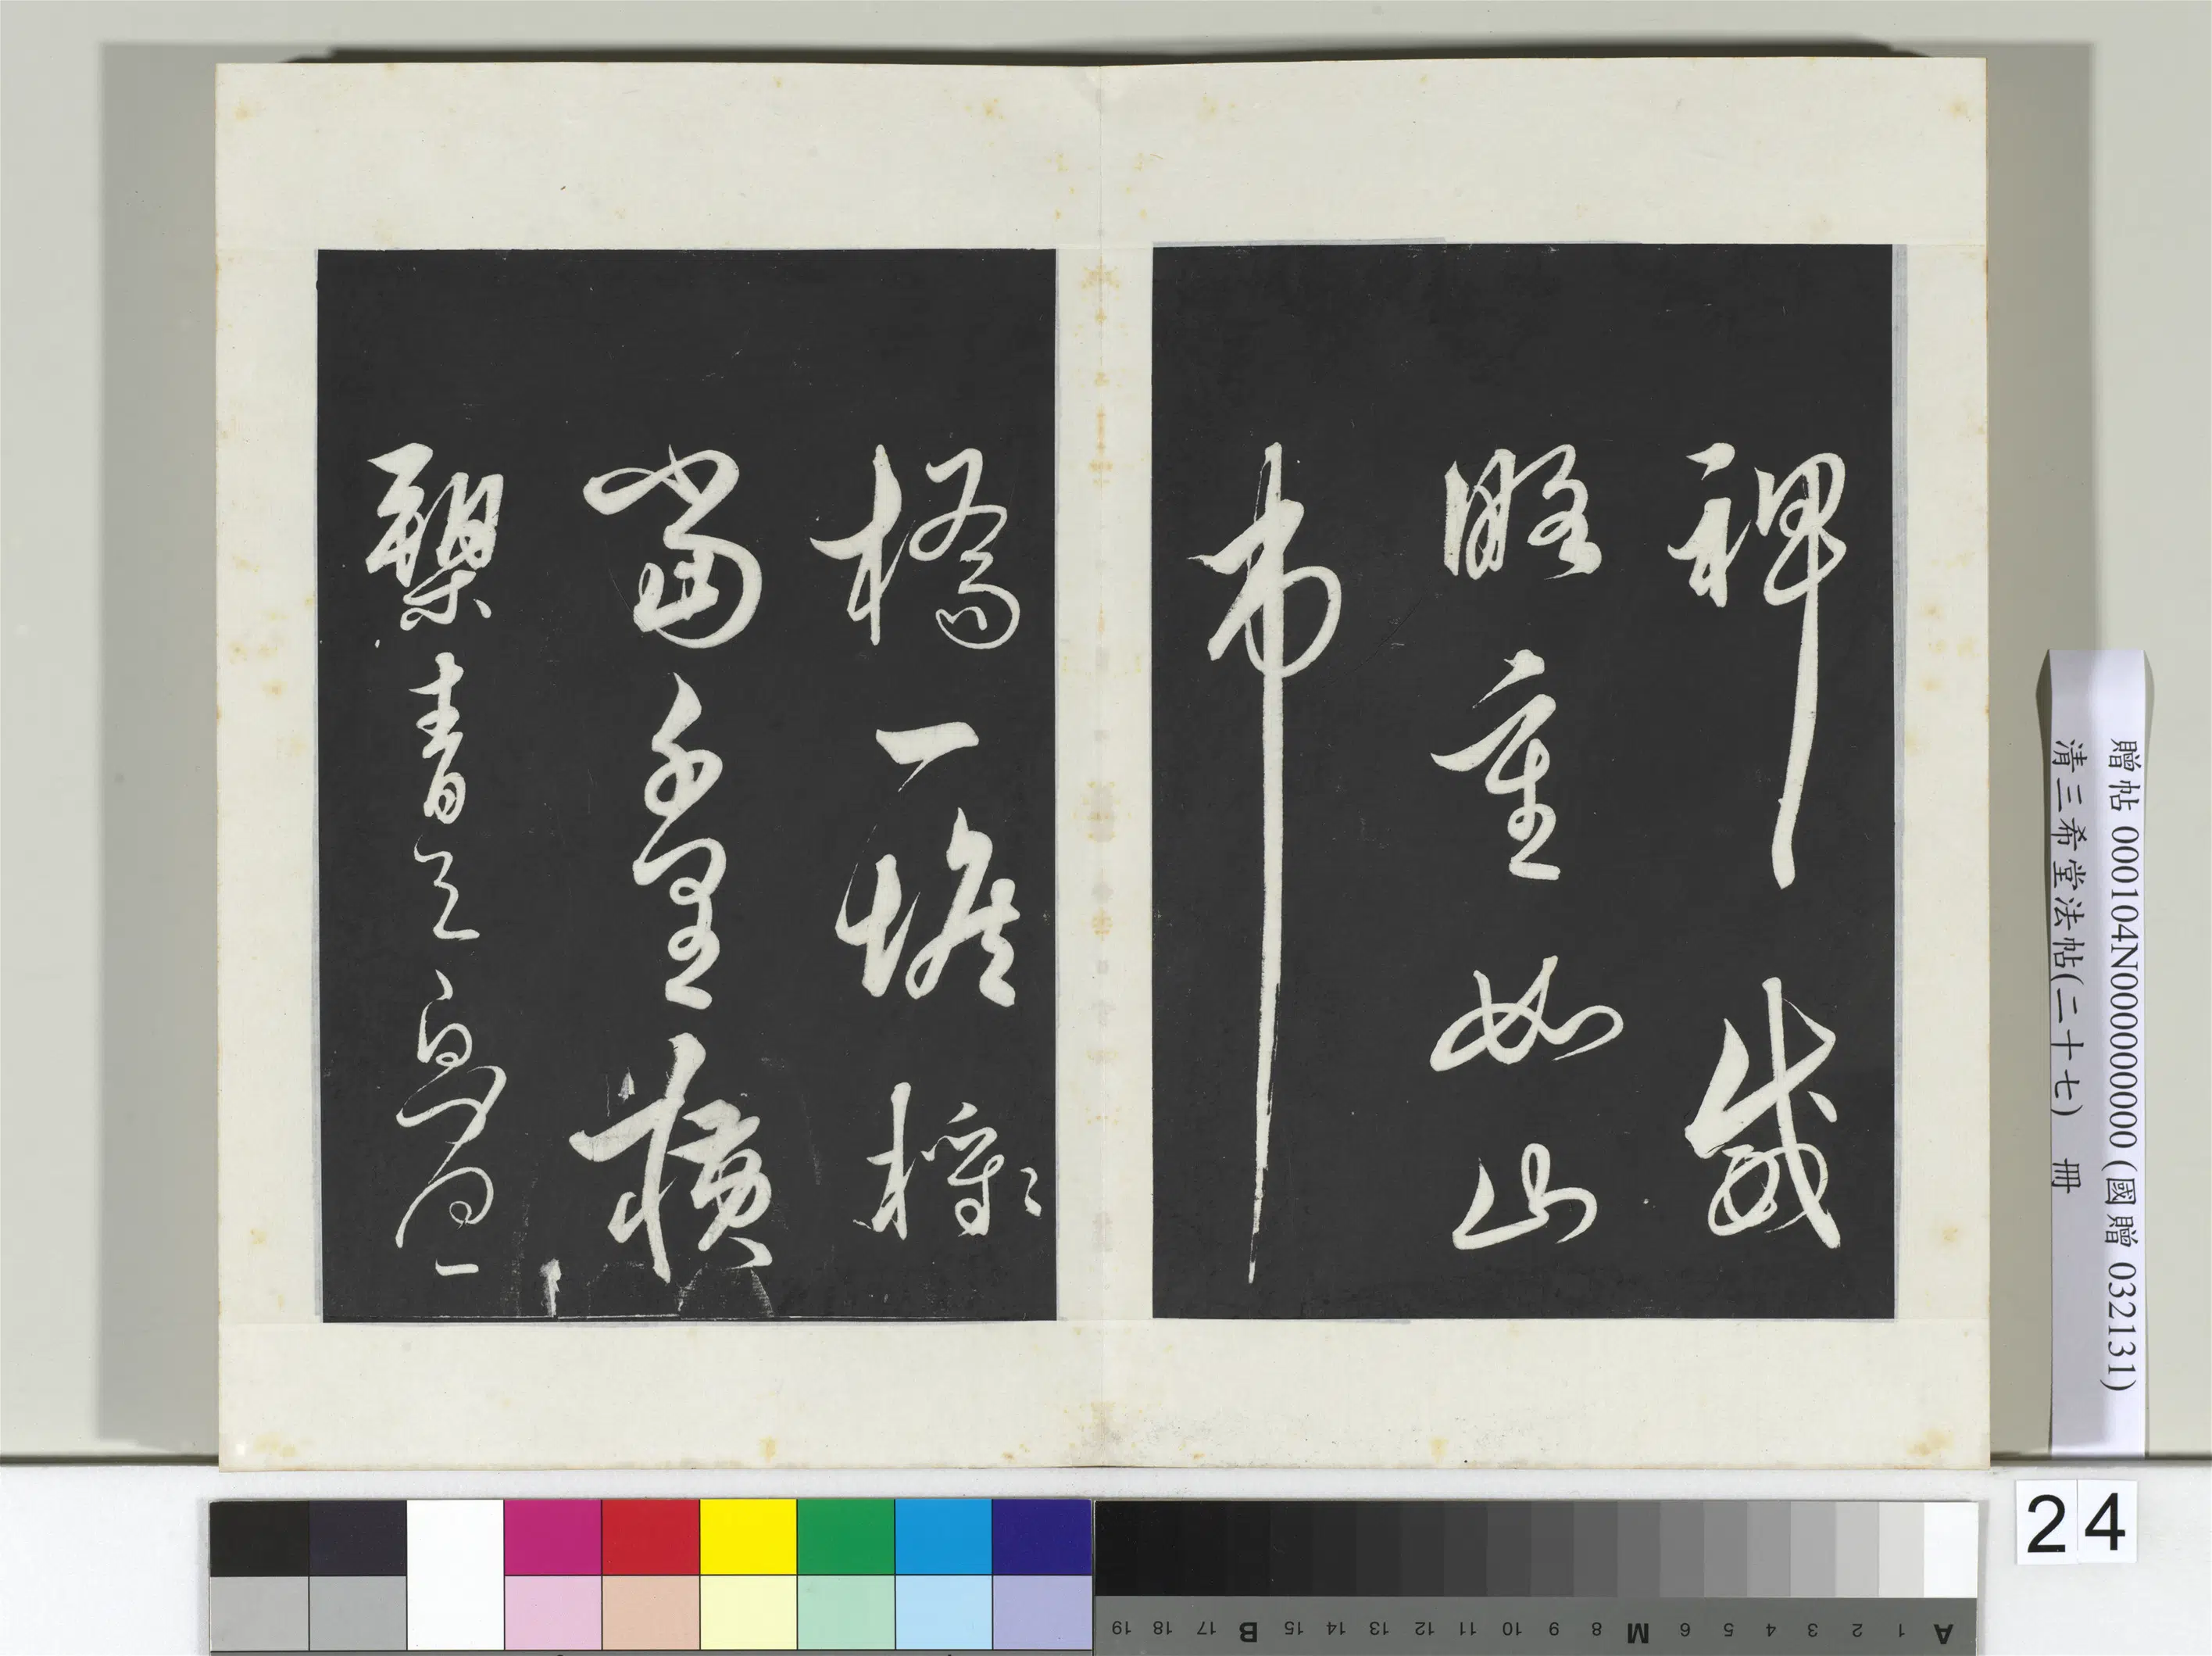 裨歲
賂重如山
市
橋一擔
當千里橫
槊青天
贈帖 000104N000000000 (國贈 032131)
清三希堂法帖(二十七) 冊
24
A 1 2 3 4 5 6 M 8 9 10 11 12 13 14 15 B 17 18 19